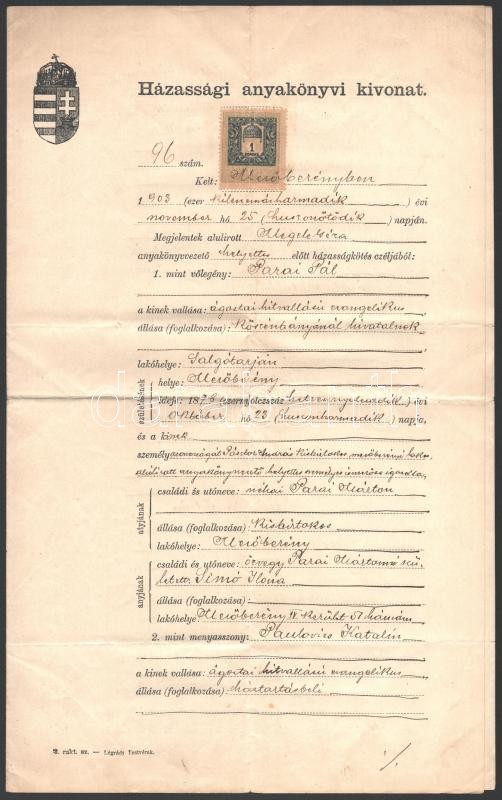 Házassági anyakönyvi kivonat.
1
96 szám.
Kelt: Mezőberényben
1 903 (ezer kilencszázharmadik) évi
november hó 25 (huszonötödik) napján.
Megjelentek alulirott
anyakönyvvezető helyettes előtt házasságkötés czéljából:
1. mint vőlegény: Parai Pál
a kinek vallása: ágostai hitvallású evangelikus
állása (foglalkozása): Kőszénbányánál hivatalnok
lakóhelye: Salgótarján
születésének
helye: Mezőberény
ideje: 1876 (ezernyolczszáz hetvenhatodik) évi
október hó 23 (huszonharmadik) napja,
és a kinek
személyazonosságát Pándor András kisbirtokos mezőberényi lakos
alulirott anyakönyvvezető helyettes személyes ismerőse igazolta,
atyjának
családi és utóneve: néhai Parai Márton
állása (foglalkozása): Kisbirtokos
lakóhelye: Mezőberény
anyjának
családi és utóneve: özvegy Parai Mártonné szü-
letett Simó Ilona
állása (foglalkozása):
lakóhelye Mezőberény IV kerület 51 házszám
2. mint menyasszony: Paulovics Katalin
a kinek vallása: ágostai hitvallású evangelikus
állása (foglalkozása): háztartásbeli
2. rakt. sz. — Légrády Testvérek.
·/.